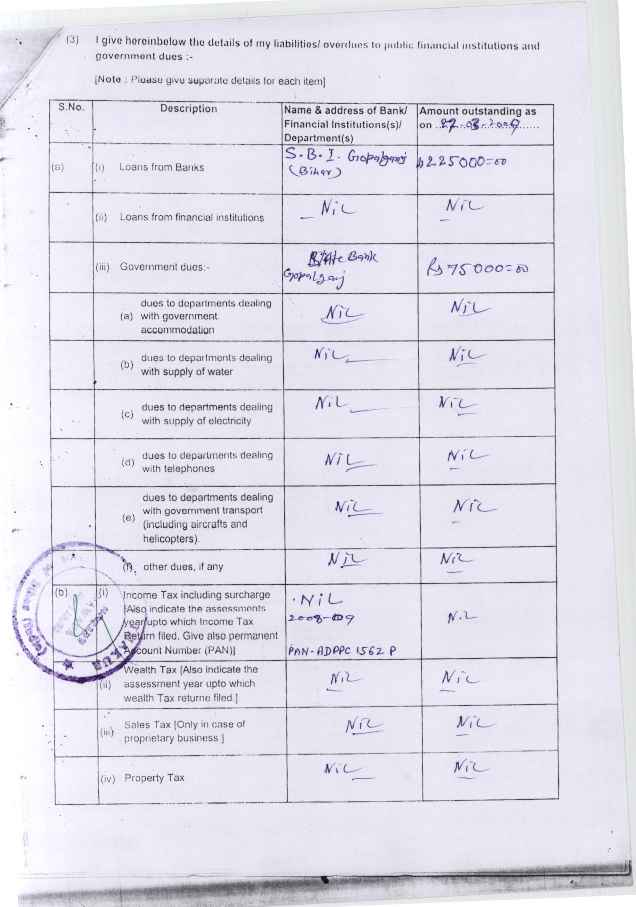 (3) I give hereinbelow the details of my liabilities/ overdues to public financial institutions and
government dues :-
[Note : Please give separate details for each item]
S.No. Description Name & address of Bank/ Financial Institutions(s)/ Department(s) Amount outstanding as on 27-03-2009
(a) (i) Loans from Banks S.B.I. Gopalganj (Bihar) 225000=00
(ii) Loans from financial institutions Nil Nil
(iii) Government dues:- State Bank Gopalganj Rs 75000=00
(a) dues to departments dealing with government accommodation Nil Nil
(b) dues to departments dealing with supply of water Nil Nil
(c) dues to departments dealing with supply of electricity Nil Nil
(d) dues to departments dealing with telephones Nil Nil
(e) dues to departments dealing with government transport (including aircrafts and helicopters). Nil Nil
(f) other dues, if any Nil Nil
(b) (i) Income Tax including surcharge [Also indicate the assessments year upto which Income Tax Return filed. Give also permanent Account Number (PAN)] Nil 2008-09 PAN-ADPPC 1562 P Nil
(ii) Wealth Tax [Also indicate the assessment year upto which wealth Tax returne filed.] Nil Nil
(iii) Sales Tax [Only in case of proprietary business ] Nil Nil
(iv) Property Tax Nil Nil